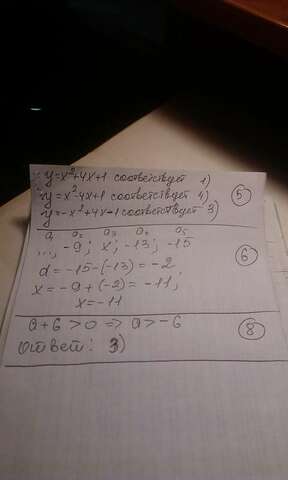 y=x²+4x+1 соответствует 1)
y=x²-4x+1 соответствует 4) ⑤
y=-x²+4x-1 соответствует 3)
a₁ a₂ a₃ a₄ a₅
...; -9; x; -13; -15 ⑥
d = -15-(-13) = -2
x = -9 + (-2) = -11;
x = -11
a+6 > 0 => a > -6 ⑧
Ответ: 3)